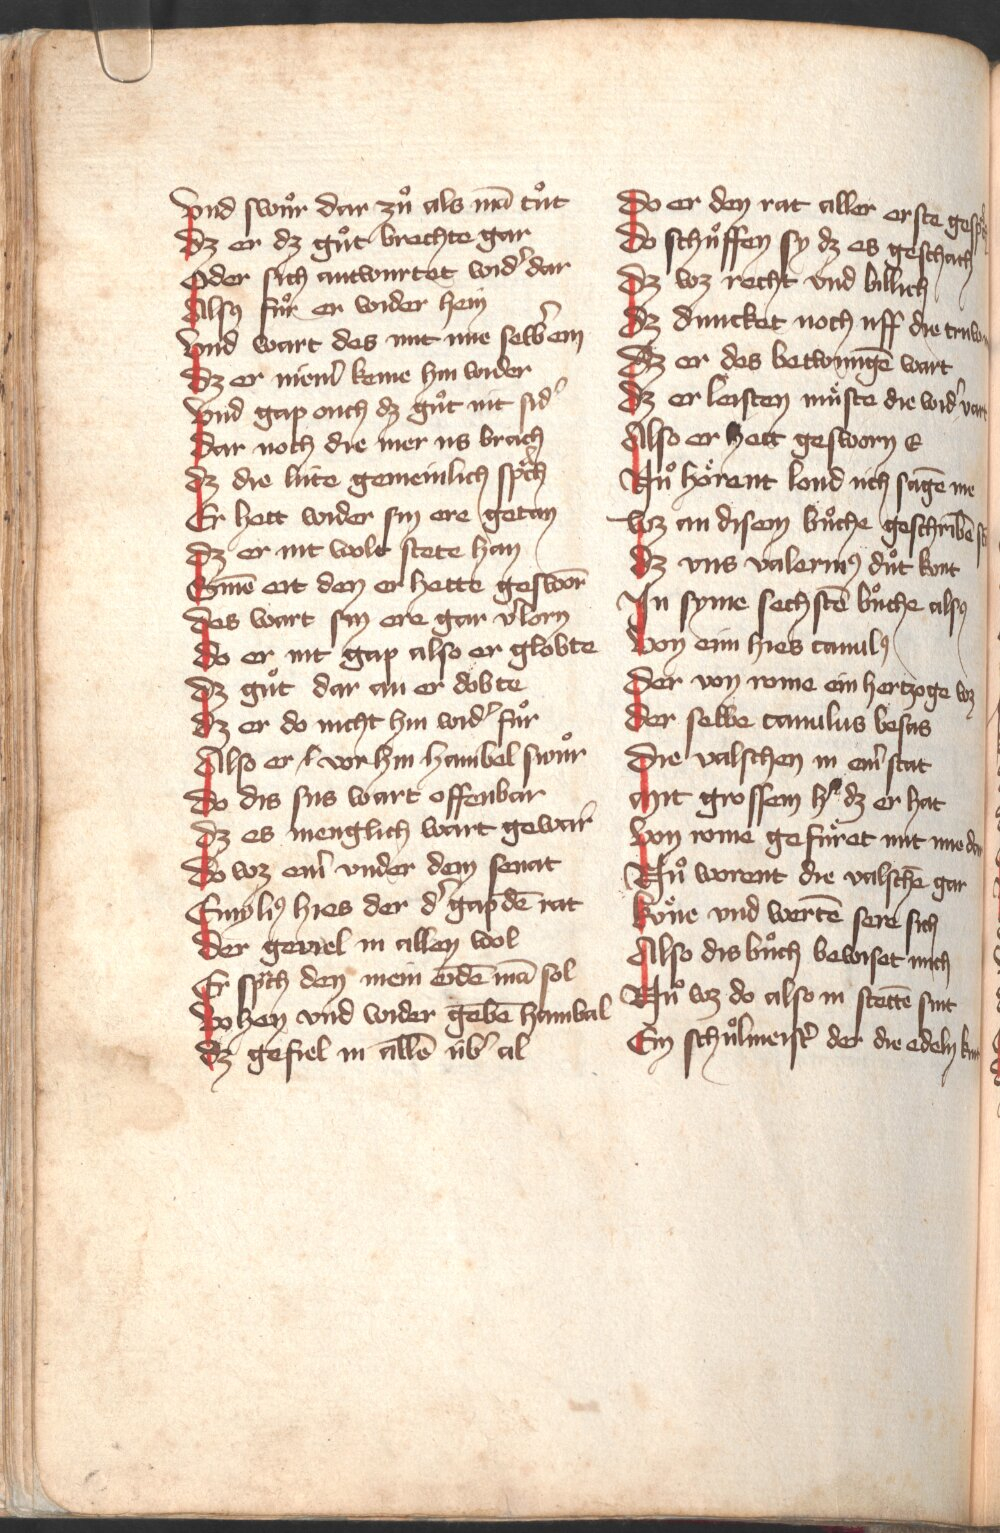 vnd swuͦr dar zuͦ als mā tuͦt
dz er dz guͦt brechte gar
Oder sich antwurtet wid' dar
Also fuͦr er wider hein
vnd wart des mit me selb' ein
dz er niem' keme hin wider
vnd gap ouch dz guͦt nit sid'
Dar noch die mer us brach
dz die lúte gemeinlich spͣch
Er hett wider sin ere getan
dz er nit wolt stete han
Sinē eit den er hette geswor̄
des wart sin ere gar v'lorn
do er nit gap also er globte
dz guͦt dar an er dobte
dz er do nicht hin wid' fuͦr
Also er vor hin hanibel swuͦr
do dis sus wart offenbar
dz es menglich wart gewar
do wz ein' vnder dem senat
Emylꝰ hies der d' gap dē rat
der geviel in allen wol
Er spͣch den mein eidē mā sol
vohen vnd wider gebē hanibal
dz gefiel in allē úb' al
do er den rat aller erste
do schuͦffen sy dz es geschach
dz wz recht vnd billich
dz duncket noch uff die
dz er des betwungē wart
dz er leisten muͤste die wid'
Also er hett gesworn e
Nuͦ hoͤrent lond úch sagē me
wz an disem buͦche geschribē
dz vns valeriuꝰ duͦt kont
In syme sechstē buͦche alsꝰ
von eim hies camulꝰ
der von rome ein hertzoge wz
der selbe camulus besas
die valschen in ein' stat
mit grossem h' dz er hat
von rome gefuͤret mit ime
Nuͦ worent die valschē gar
koͤne vnd wertē sere sich
Also dis buͦch bewiset mich
Nuͦ wz do also in stettē sint
Ein schuͦlmeist' der die edeln